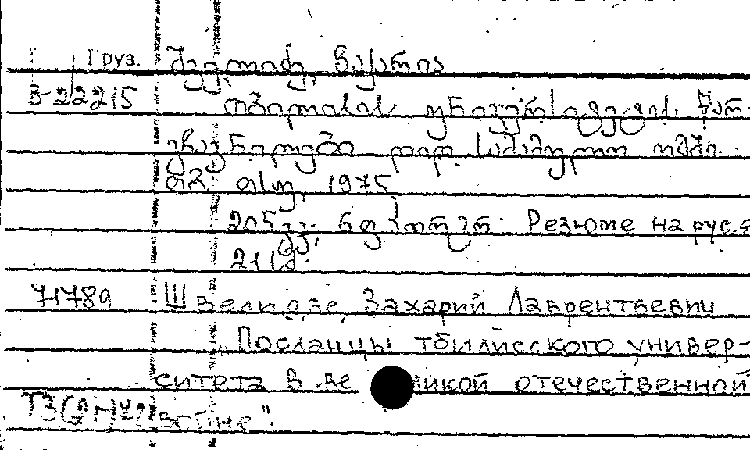 Груз.
შველიძე, ზაქარია
3-22215 თბილისის უნივერსიტეტის წარ
გზავნილები დიდ სამამულო ომში.
თბ. თსუ, 1975
205 გვ; Резюме на рус.я
211გ.
71789 Швелидзе, Захарий Лаврентьевич
Посланцы тбилисского универ-
ситета в ве ликой отечественной
войне".